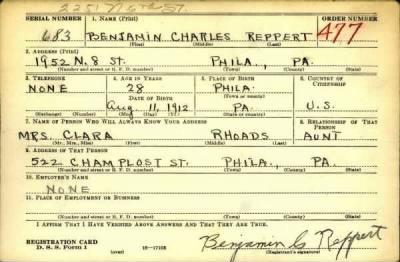 2251 N 6th St.
SERIAL NUMBER 1. NAME (Print) ORDER NUMBER
683 BENJAMIN CHARLES REPPERT 477
(First) (Middle) (Last)
2. ADDRESS (Print)
1952 N. 8 ST. PHILA., PA.
(Number and street or R. F. D. number) (Town) (County) (State)
3. TELEPHONE 4. AGE IN YEARS 5. PLACE OF BIRTH 6. COUNTRY OF CITIZENSHIP
NONE 28 PHILA.
DATE OF BIRTH (Town or county)
Aug. 11, 1912 PA. U.S.
(Exchange) (Number) (Mo.) (Day) (Yr.) (State or country)
7. NAME OF PERSON WHO WILL ALWAYS KNOW YOUR ADDRESS 8. RELATIONSHIP OF THAT PERSON
MRS. CLARA RHOADS AUNT
(Mr., Mrs., Miss) (First) (Middle) (Last)
9. ADDRESS OF THAT PERSON
522 CHAMPLOST ST. PHILA., PA.
(Number and street or R. F. D. number) (Town) (County) (State)
10. EMPLOYER'S NAME
NONE
11. PLACE OF EMPLOYMENT OR BUSINESS
(Number and street or R. F. D. number) (Town) (County) (State)
I AFFIRM THAT I HAVE VERIFIED ABOVE ANSWERS AND THAT THEY ARE TRUE.
REGISTRATION CARD
D. S. S. Form 1 (over) 16—17105
Benjamin C. Reppert
(Registrant's signature)